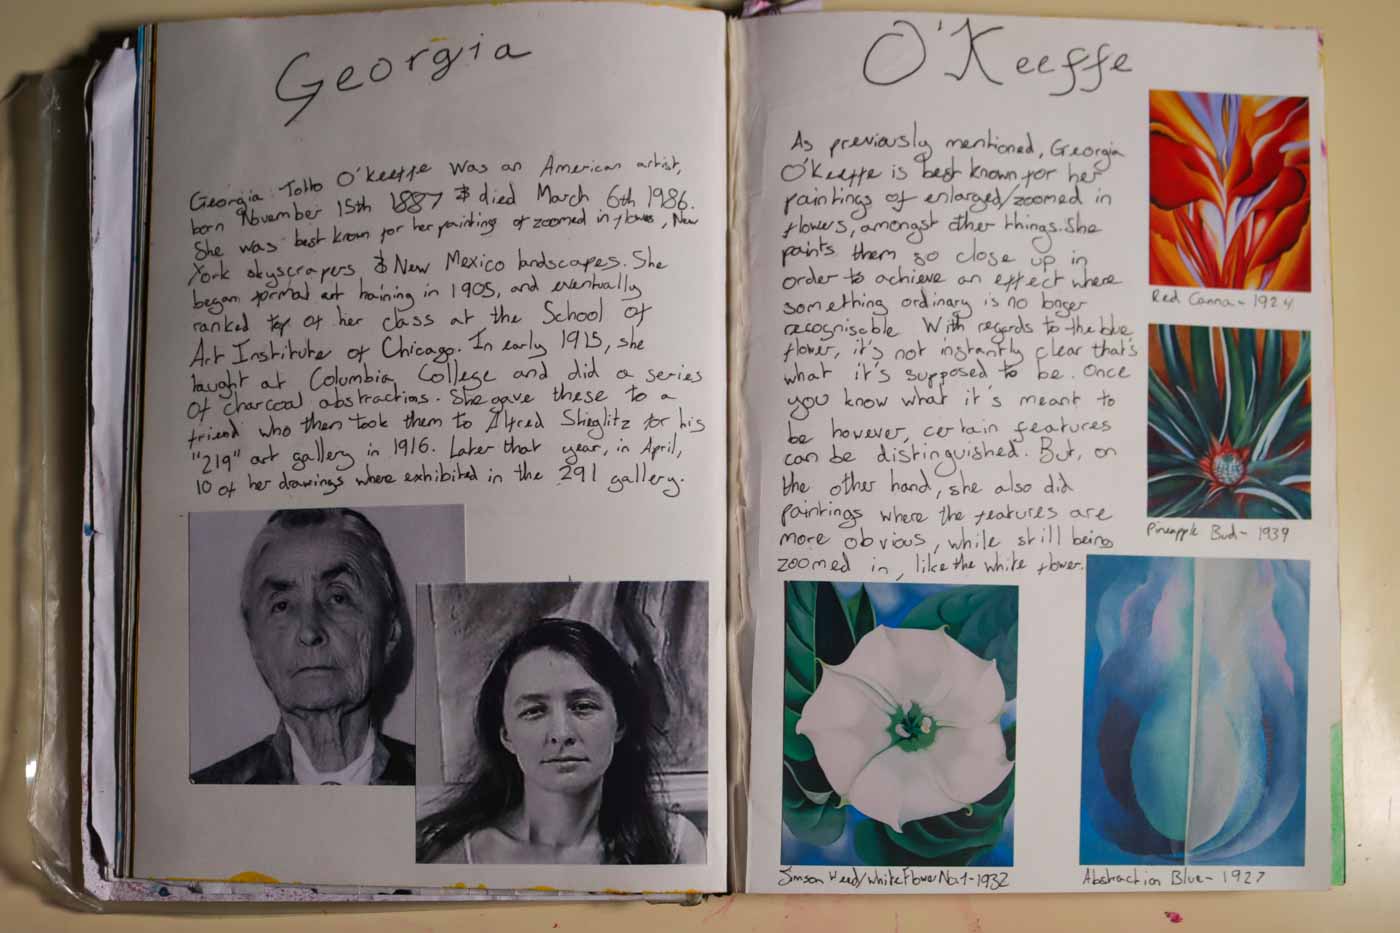 Georgia
Georgia Totto O'keeffe was an American artist,
born November 15th 1887 & died March 6th 1986.
She was best known for her painting of zoomed in flowers, New
York skyscrapers, & New Mexico landscapes. She
began formal art training in 1905, and eventually
ranked top of her class at the School of
Art Institute of Chicago. In early 1915, she
taught at Columbia College and did a series
of charcoal abstractions. She gave these to a
friend who then took them to Alfred Stieglitz for his
"219" art gallery in 1916. Later that year, in April,
10 of her drawings where exhibited in the 291 gallery.
O'Keeffe
As previously mentioned, Georgia
O'Keeffe is best known for her
paintings of enlarged/zoomed in
flowers, amongst other things. She
paints them so close up in
order to achieve an effect where
something ordinary is no longer
recognisable. With regards to the blue
flower, it's not instantly clear that's
what it's supposed to be. Once
you know what it's meant to
be however, certain features
can be distinguished. But, on
the other hand, she also did
paintings where the features are
more obvious, while still being
zoomed in, like the white flower.
Red Canna - 1924
Pineapple Bud - 1939
Jimson Weed/White Flower No.1 - 1932
Abstraction Blue - 1927